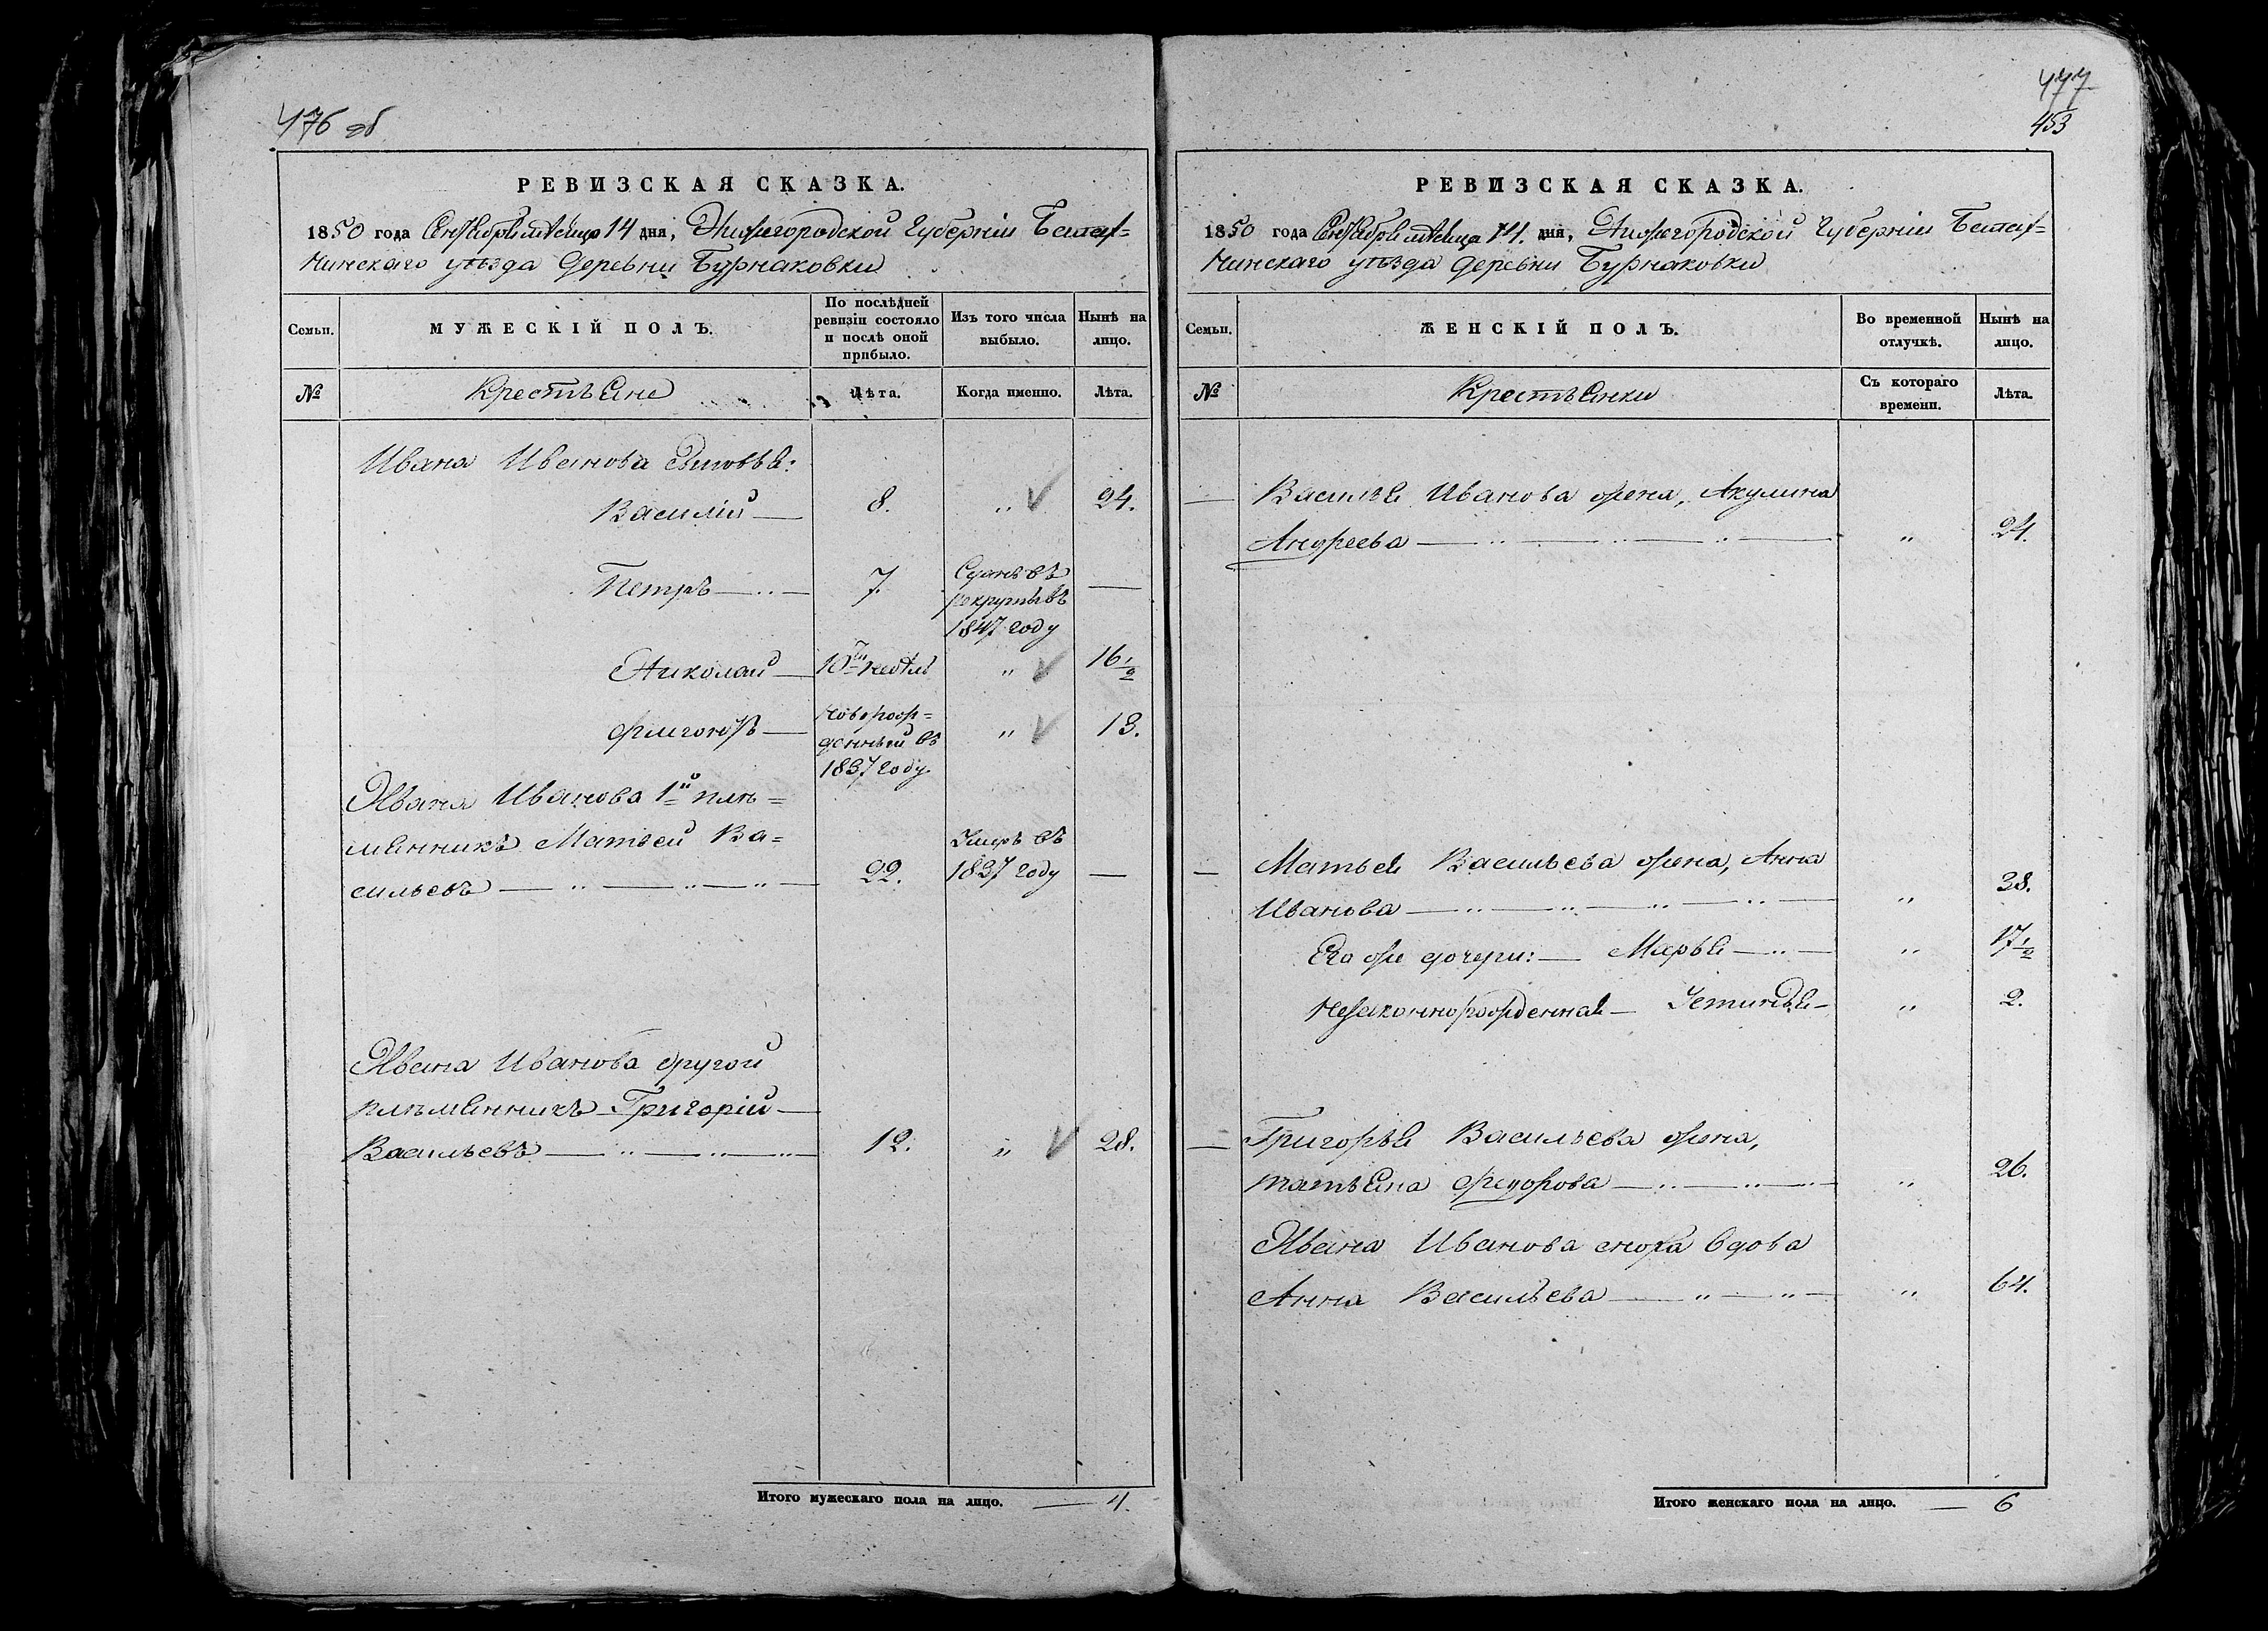 476 об
РЕВИЗСКАЯ СКАЗКА.
1850 года Сентября мѣсяца 14 дня, Нижегородской Губерніи Балах=
нинскаго уѣзда деревни Бурнаковки
Семьи.
МУЖЕСКІЙ ПОЛЪ.
По послѣдней ревизіи состояло и послѣ оной прибыло.
Изъ того числа выбыло.
Нынѣ на лицо.
№
Крестьяне
Лѣта.
Когда именно.
Лѣта.
Ивана Иванова сыновья:
Василій — 8. „ 24.
Петръ — 7. Сданъ въ рекруты въ 1847 году —
Николай — 10ти недѣль „ 16 1/2
новорож=
денный въ „ 13.
1837 году
Ивана Иванова 1й плѣ=
мянникъ Матвей Ва=
сильевъ — 22. Умеръ въ 1837 году —
Ивана Иванова другой
плѣмянникъ Григорій —
Васильевъ — 12. „ 28.
Итого мужескаго пола на лицо. — 4.
477
453
РЕВИЗСКАЯ СКАЗКА.
1850 года Сентября мѣсяца 14. дня, Нижегородской Губерніи Балах=
нинскаго уѣзда деревни Бурнаковки
Семьи.
ЖЕНСКІЙ ПОЛЪ.
Во временной отлучкѣ.
Нынѣ на лицо.
№
Крестьянки
Съ котораго времени.
Лѣта.
— Василья Иванова жена, Акулина
Андреева — „ 24.
— Матвея Васильева жена, Анна
Иванова — „ 38.
Его же дочери: — Марья — „ 17 1/2
Незаконнорожденная — Устинья — „ 2.
— Григорья Васильева жена,
Татьяна Федорова — „ 26.
Ивана Иванова сноха вдова
Анна Васильева — „ 64.
Итого женскаго пола на лицо. — 6